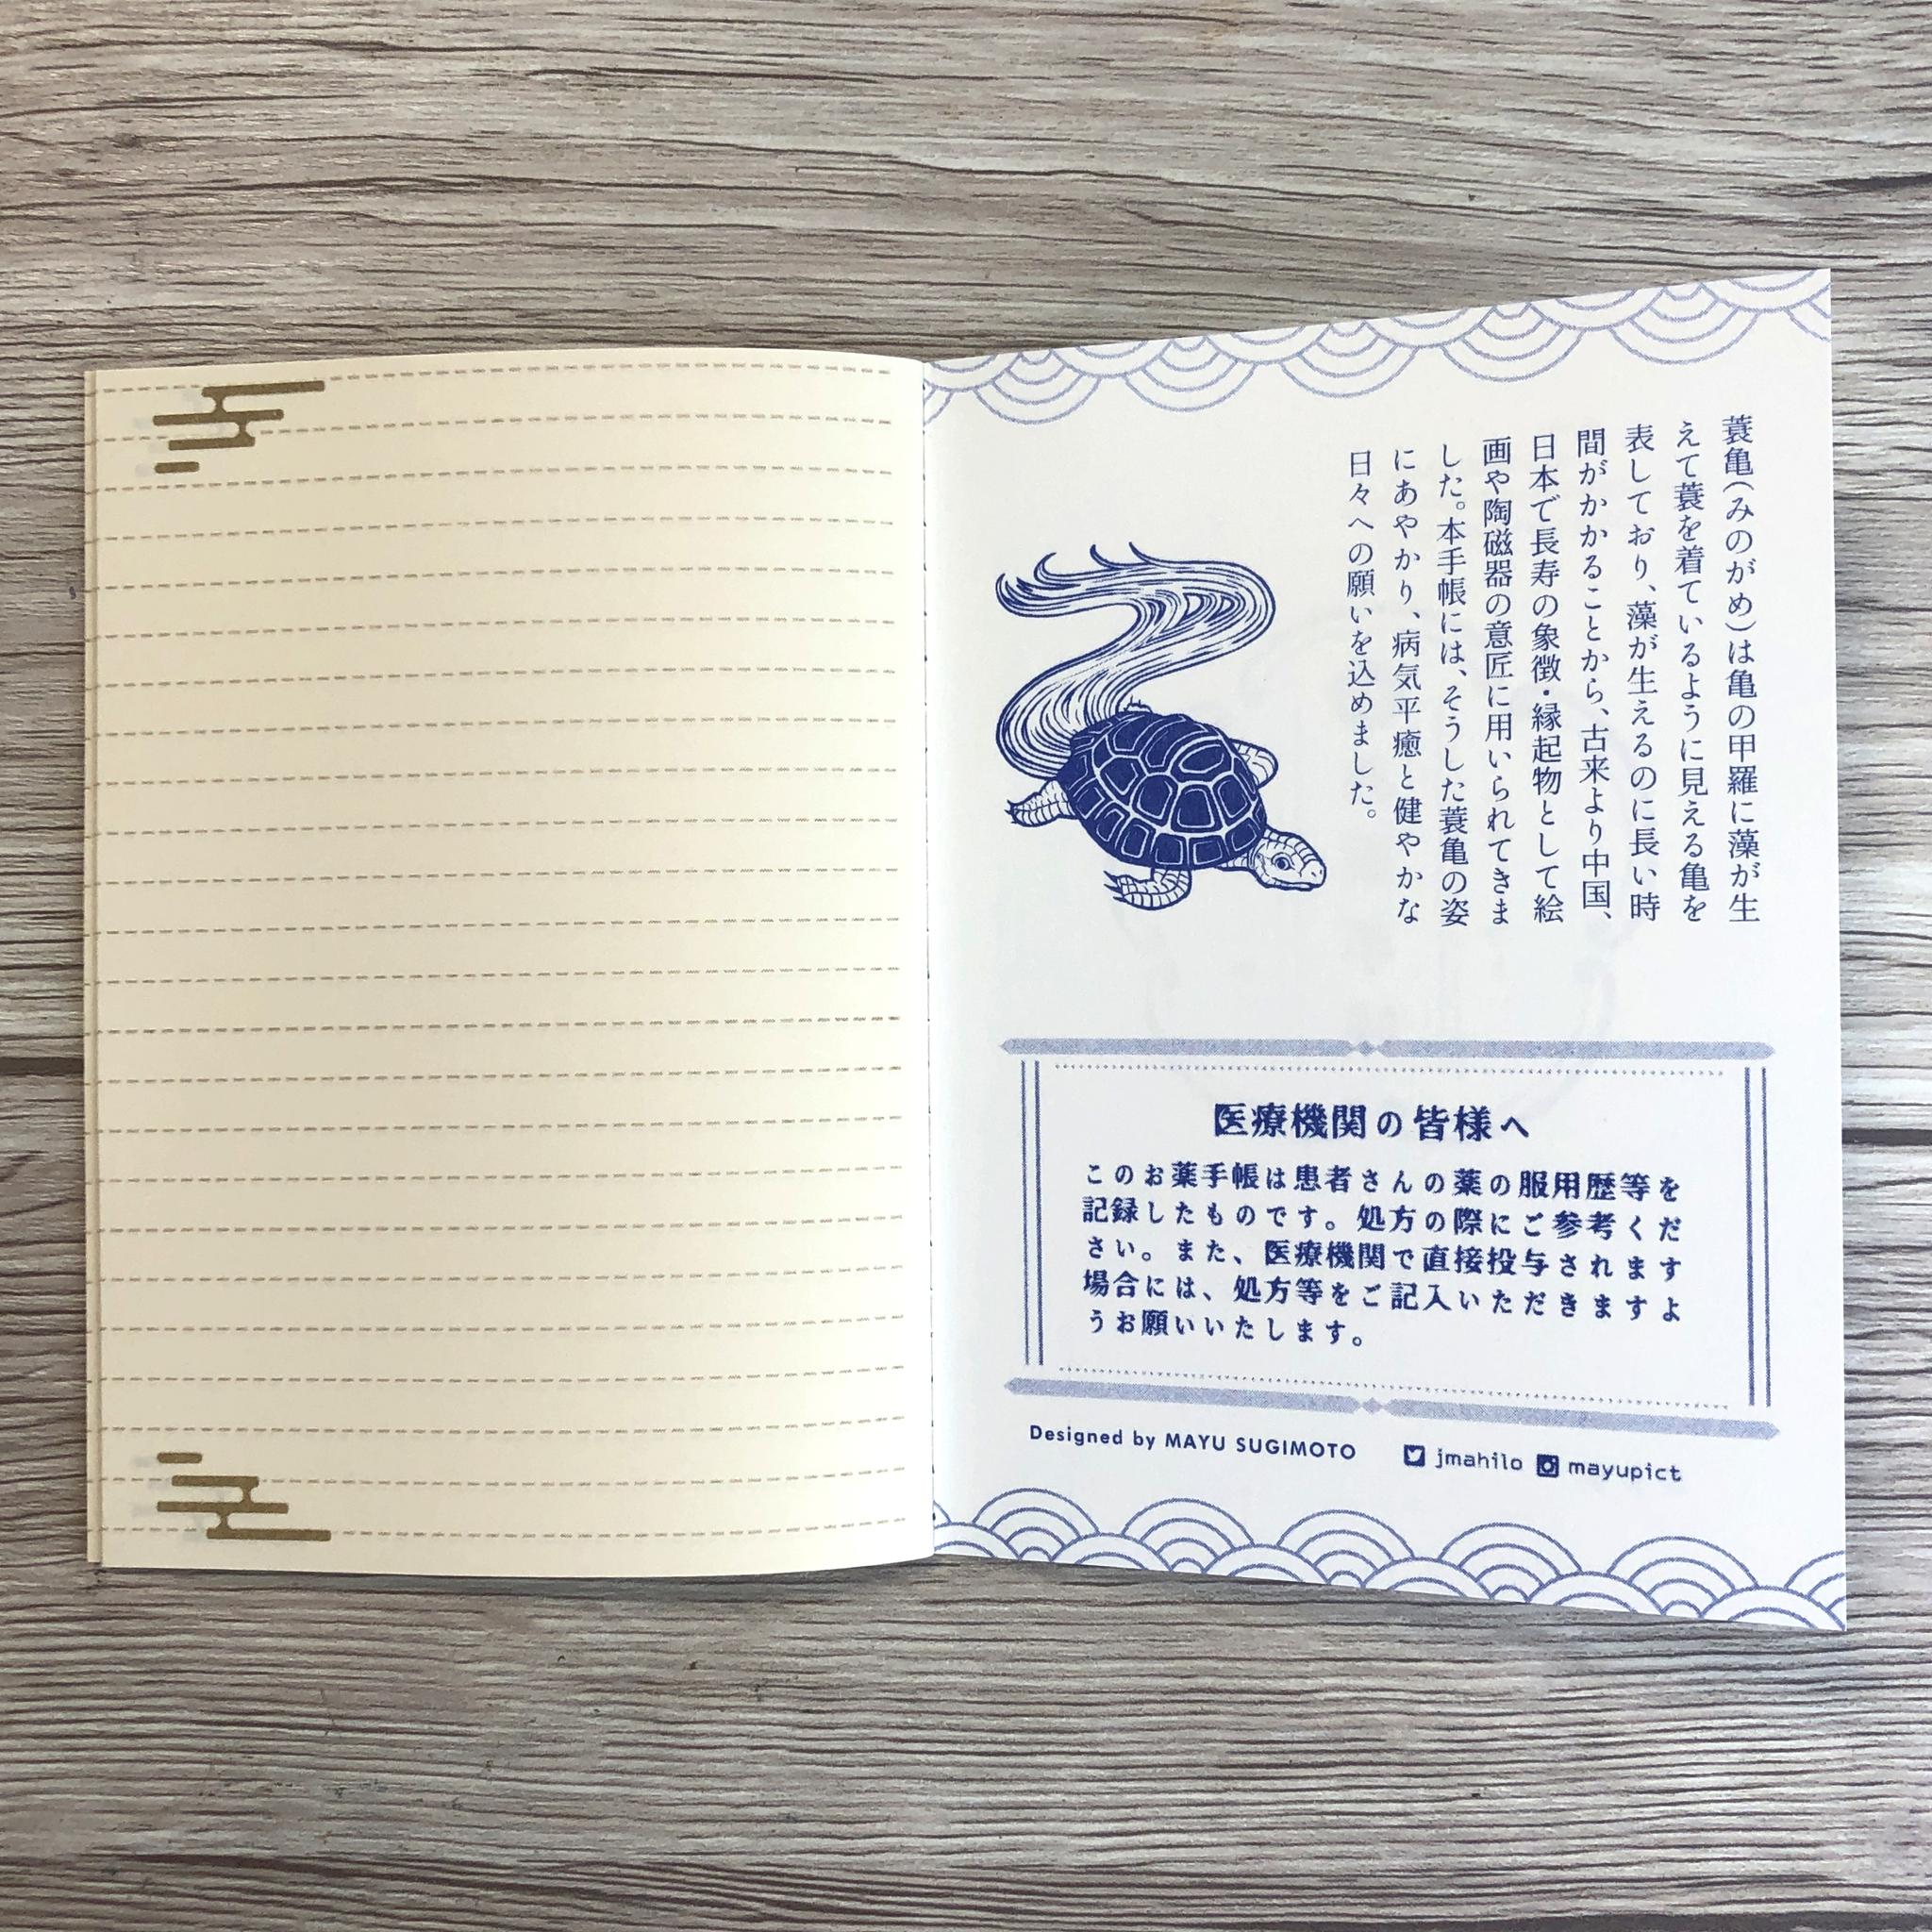 蓑亀(みのがめ)は亀の甲羅に藻が生
えて蓑を着ているように見える亀を
表しており、藻が生えるのに長い時
間がかかることから、古来より中国、
日本で長寿の象徴・縁起物として絵
画や陶磁器の意匠に用いられてきま
した。本手帳には、そうした蓑亀の姿
にあやかり、病気平癒と健やかな
日々への願いを込めました。
医療機関の皆様へ
このお薬手帳は患者さんの薬の服用歴等を
記録したものです。処方の際にご参考くだ
さい。また、医療機関で直接投与されます
場合には、処方等をご記入いただきますよ
うお願いいたします。
Designed by MAYU SUGIMOTO jmahilo mayupict